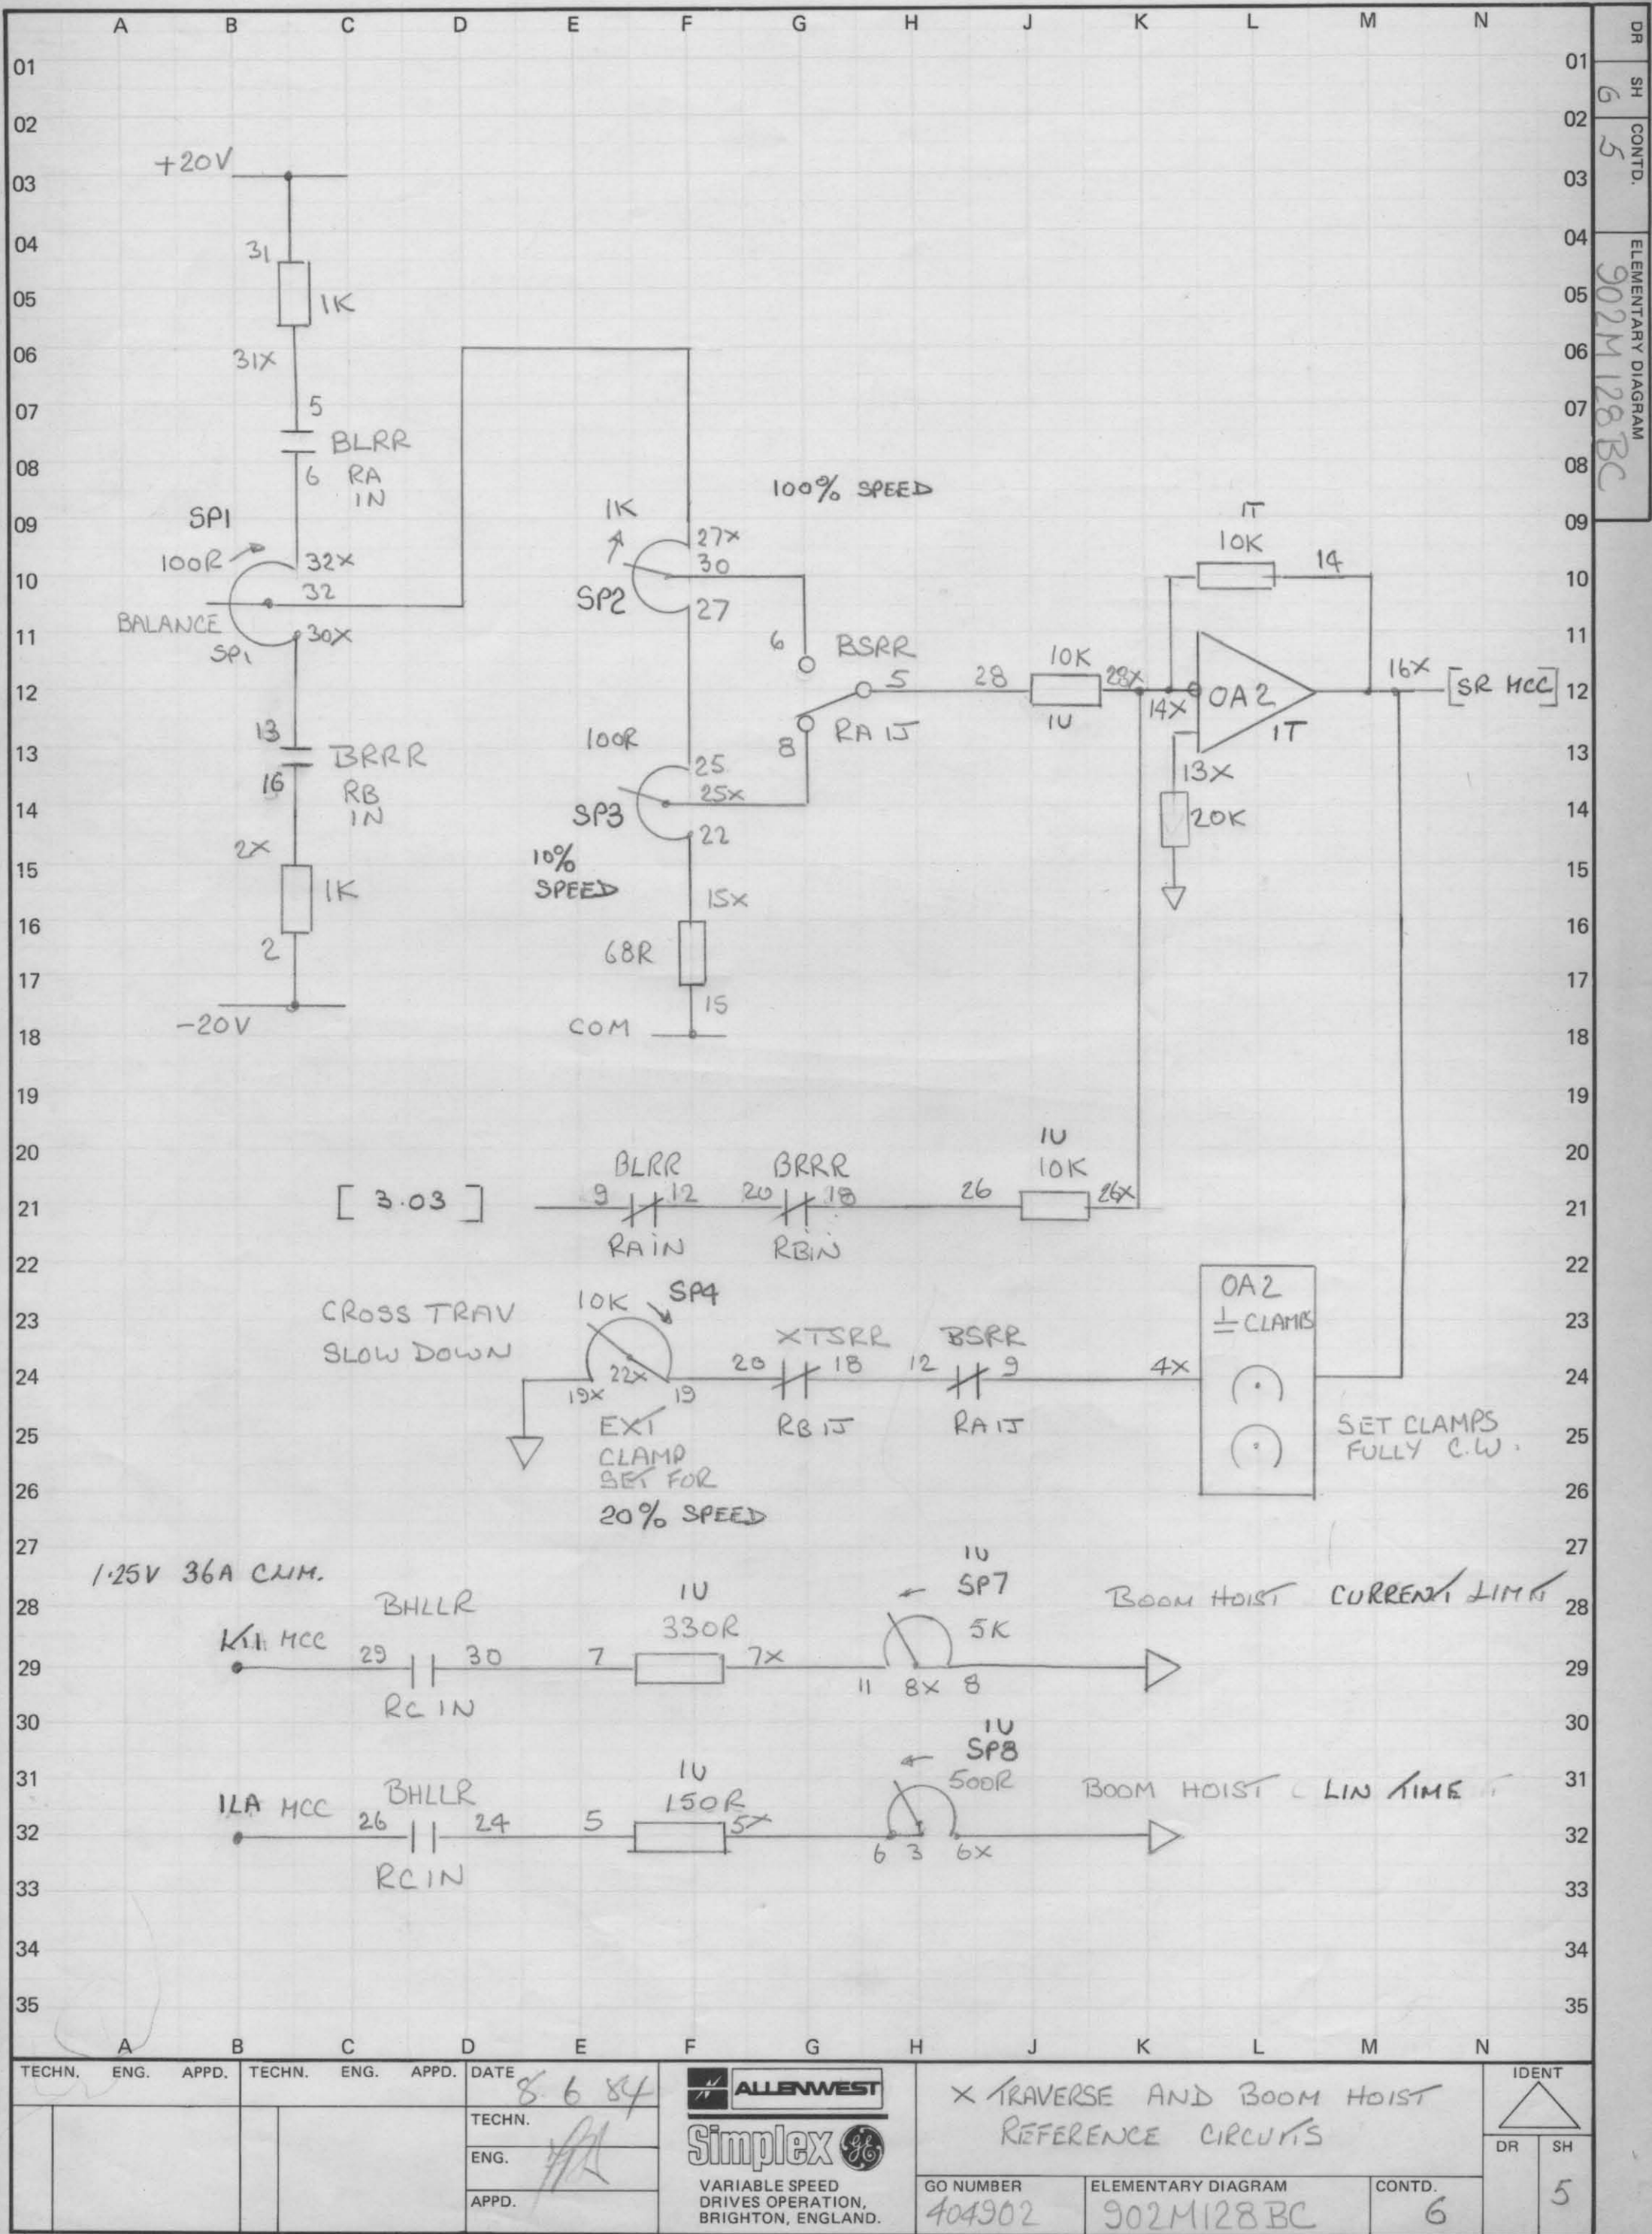 A B C D E F G H J K L M N
DR SH CONTD. ELEMENTARY DIAGRAM
6 5 902M128BC
01 01
02 02
03 03
04 04
05 05
06 06
07 07
08 08
09 09
10 10
11 11
12 12
13 13
14 14
15 15
16 16
17 17
18 18
19 19
20 20
21 21
22 22
23 23
24 24
25 25
26 26
27 27
28 28
29 29
30 30
31 31
32 32
33 33
34 34
35 35
+20V
31
1K
31X
5
BLRR
6 RA
IN
SP1
100R
32X
32
BALANCE
30X
SP1
13
BRRR
16
RB
IN
2X
1K
2
-20V
1K
27X
30
SP2
27
100% SPEED
6
BSRR
5
8
RA 1J
100R
25
25X
SP3
22
10%
SPEED
15X
68R
15
COM
28
10K
28X
1U
14X
1T
10K
14
OA2
1T
13X
20K
16X
[SR MCC]
[ 3.03 ]
BLRR
9 12
RAIN
BRRR
20 18
RBIN
26
1U
10K
26X
CROSS TRAV
SLOW DOWN
10K SP4
19X 22X 19
EXT
CLAMP
SET FOR
20% SPEED
XTSRR
20 18
RB 1J
BSRR
12 9
RA 1J
4X
OA2
CLAMPS
SET CLAMPS
FULLY C.W.
1.25V 36A CLIM.
MCC
BHLLR
29 30
RC IN
1U
330R
7 7X
1U
SP7
5K
11 8X 8
BOOM HOIST CURRENT LIMIT
1LA MCC
BHLLR
26 24
RC IN
1U
150R
5 5X
1U
SP8
500R
6 3 6X
BOOM HOIST LIN TIME
A B C D E F G H J K L M N
TECHN. ENG. APPD. TECHN. ENG. APPD.
DATE 8 6 84
TECHN.
ENG.
APPD.
ALLENWEST
Simplex GE
VARIABLE SPEED
DRIVES OPERATION,
BRIGHTON, ENGLAND.
X TRAVERSE AND BOOM HOIST
REFERENCE CIRCUITS
GO NUMBER
404902
ELEMENTARY DIAGRAM
902M128BC
CONTD.
6
IDENT
DR SH
5